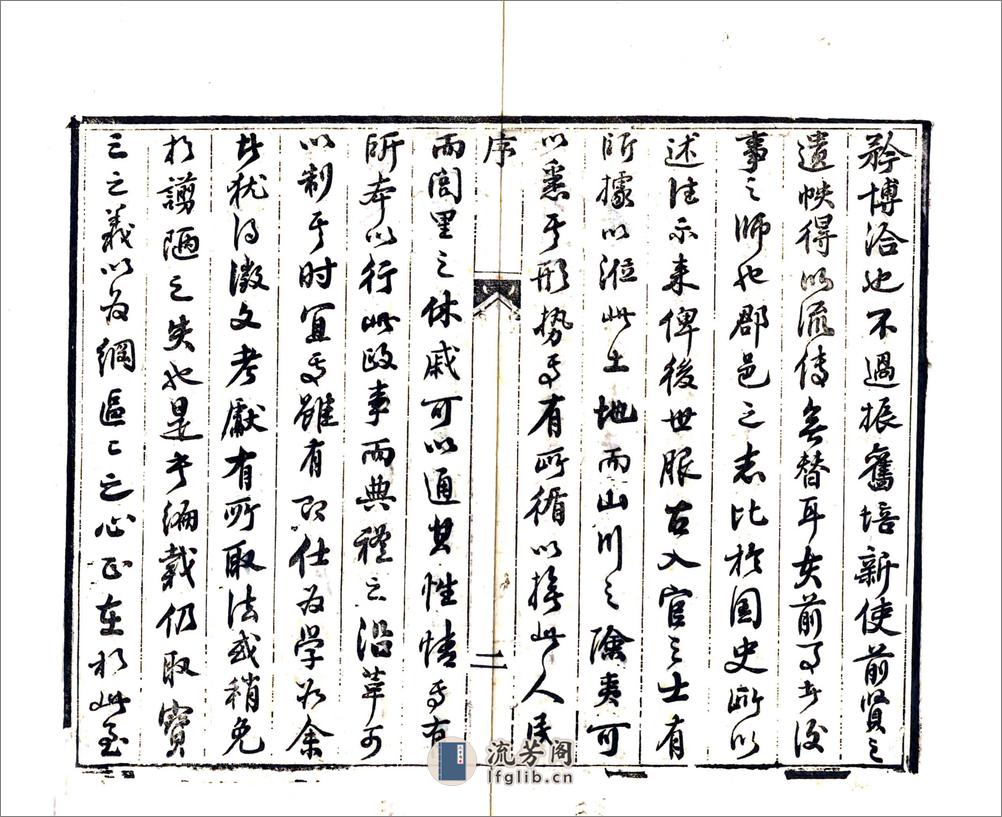 矜博洽也不過振舊培新使前賢之
遺帙得以流傳無替耳夫前事者後
事之師也郡邑之志比於國史所以
述往示来俾後世服古入官之士有
所據以涖此土地而山川之險夷可
以悉其形勢焉有所循以撫此人民
序
二
而閭里之休戚可以通其性情焉有
所本以行此政事而典禮之沿革可
以制其時宜焉雖有即仕為学如余
者犹得徵文考獻有所取法或稍免
於謭陋之失也是書編載仍取寳
三之義以為綱區區之心正在於此至
流芳阁
lfglib.cn